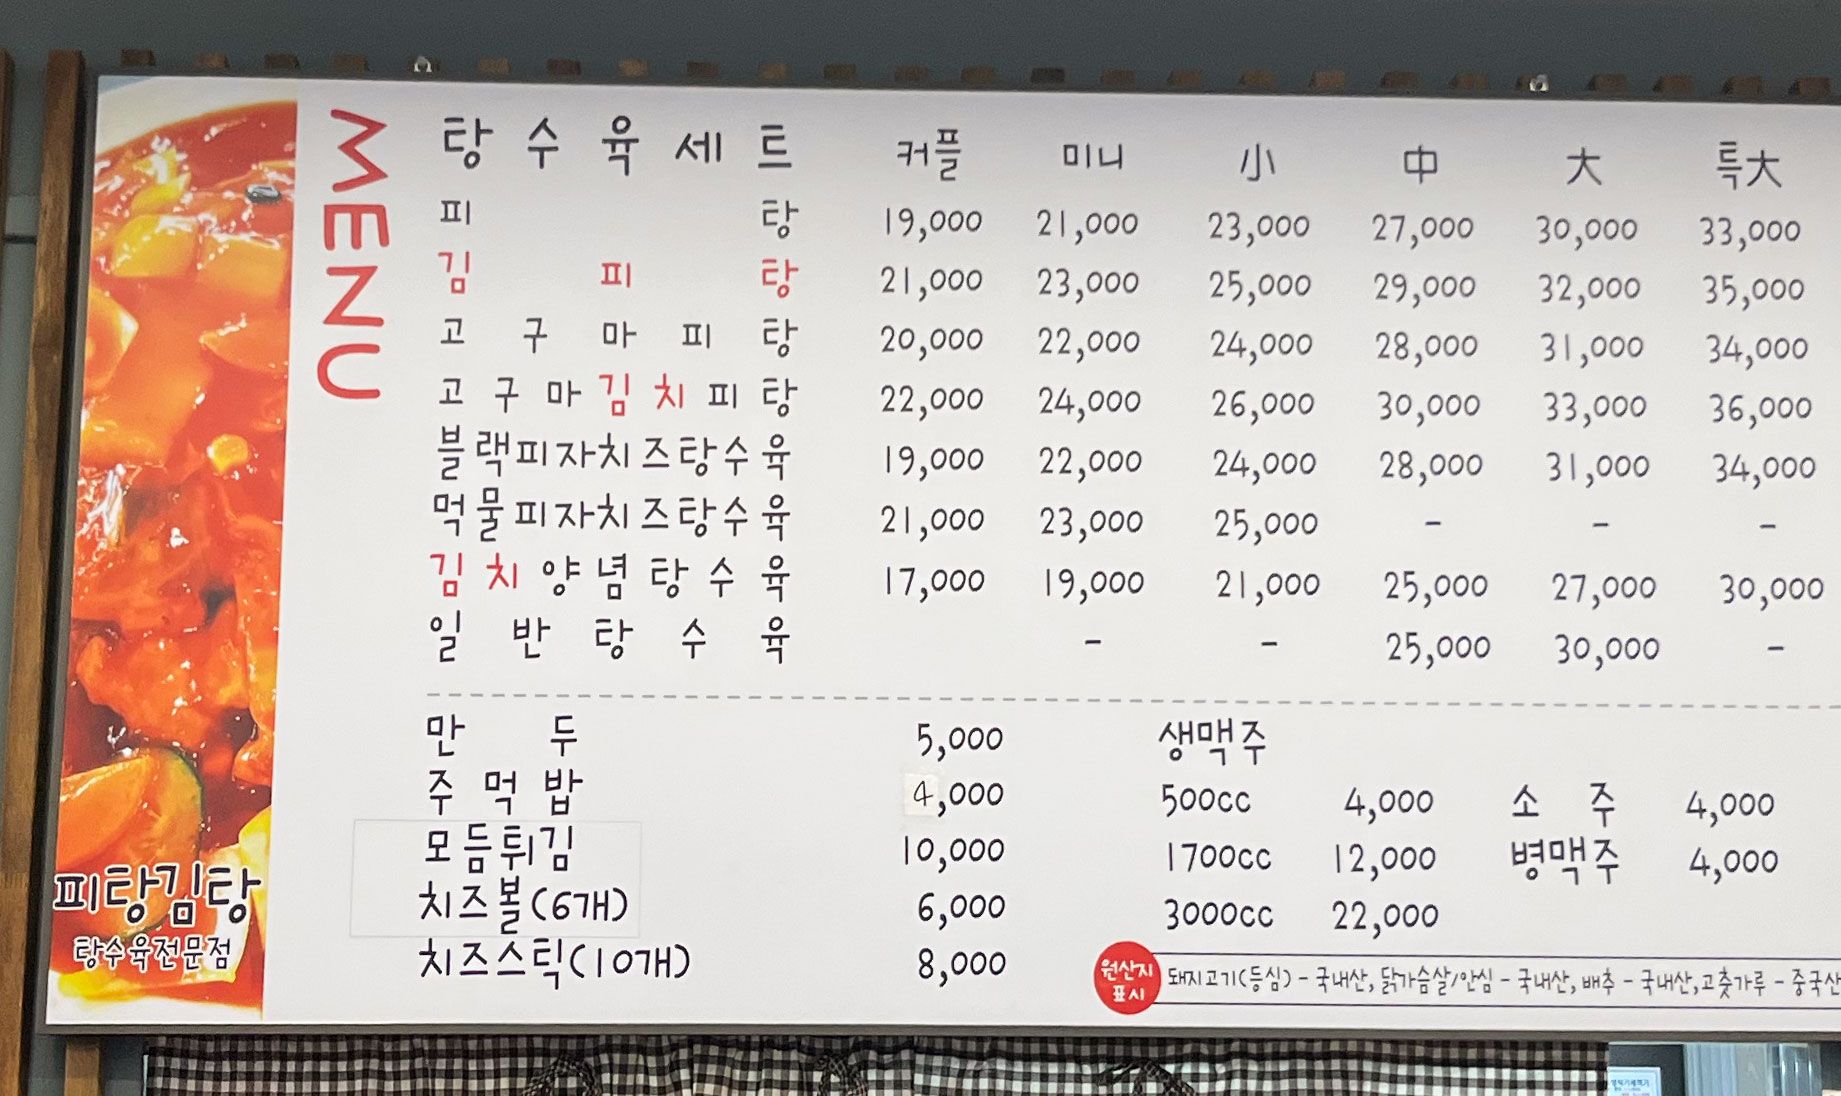 MENU
탕수육세트 커플 미니 小 中 大 특大
피탕 19,000 21,000 23,000 27,000 30,000 33,000
김피탕 21,000 23,000 25,000 29,000 32,000 35,000
고구마피탕 20,000 22,000 24,000 28,000 31,000 34,000
고구마김치피탕 22,000 24,000 26,000 30,000 33,000 36,000
블랙피자치즈탕수육 19,000 22,000 24,000 28,000 31,000 34,000
먹물피자치즈탕수육 21,000 23,000 25,000 - - -
김치양념탕수육 17,000 19,000 21,000 25,000 27,000 30,000
일반탕수육 - - 25,000 30,000 -
만두 5,000 생맥주
주먹밥 4,000 500cc 4,000 소주 4,000
모듬튀김 10,000 1700cc 12,000 병맥주 4,000
치즈볼(6개) 6,000 3000cc 22,000
치즈스틱(10개) 8,000
원산지
표시
돼지고기(등심) - 국내산, 닭가슴살/안심 - 국내산, 배추 - 국내산, 고춧가루 - 중국산
피탕김탕
탕수육전문점